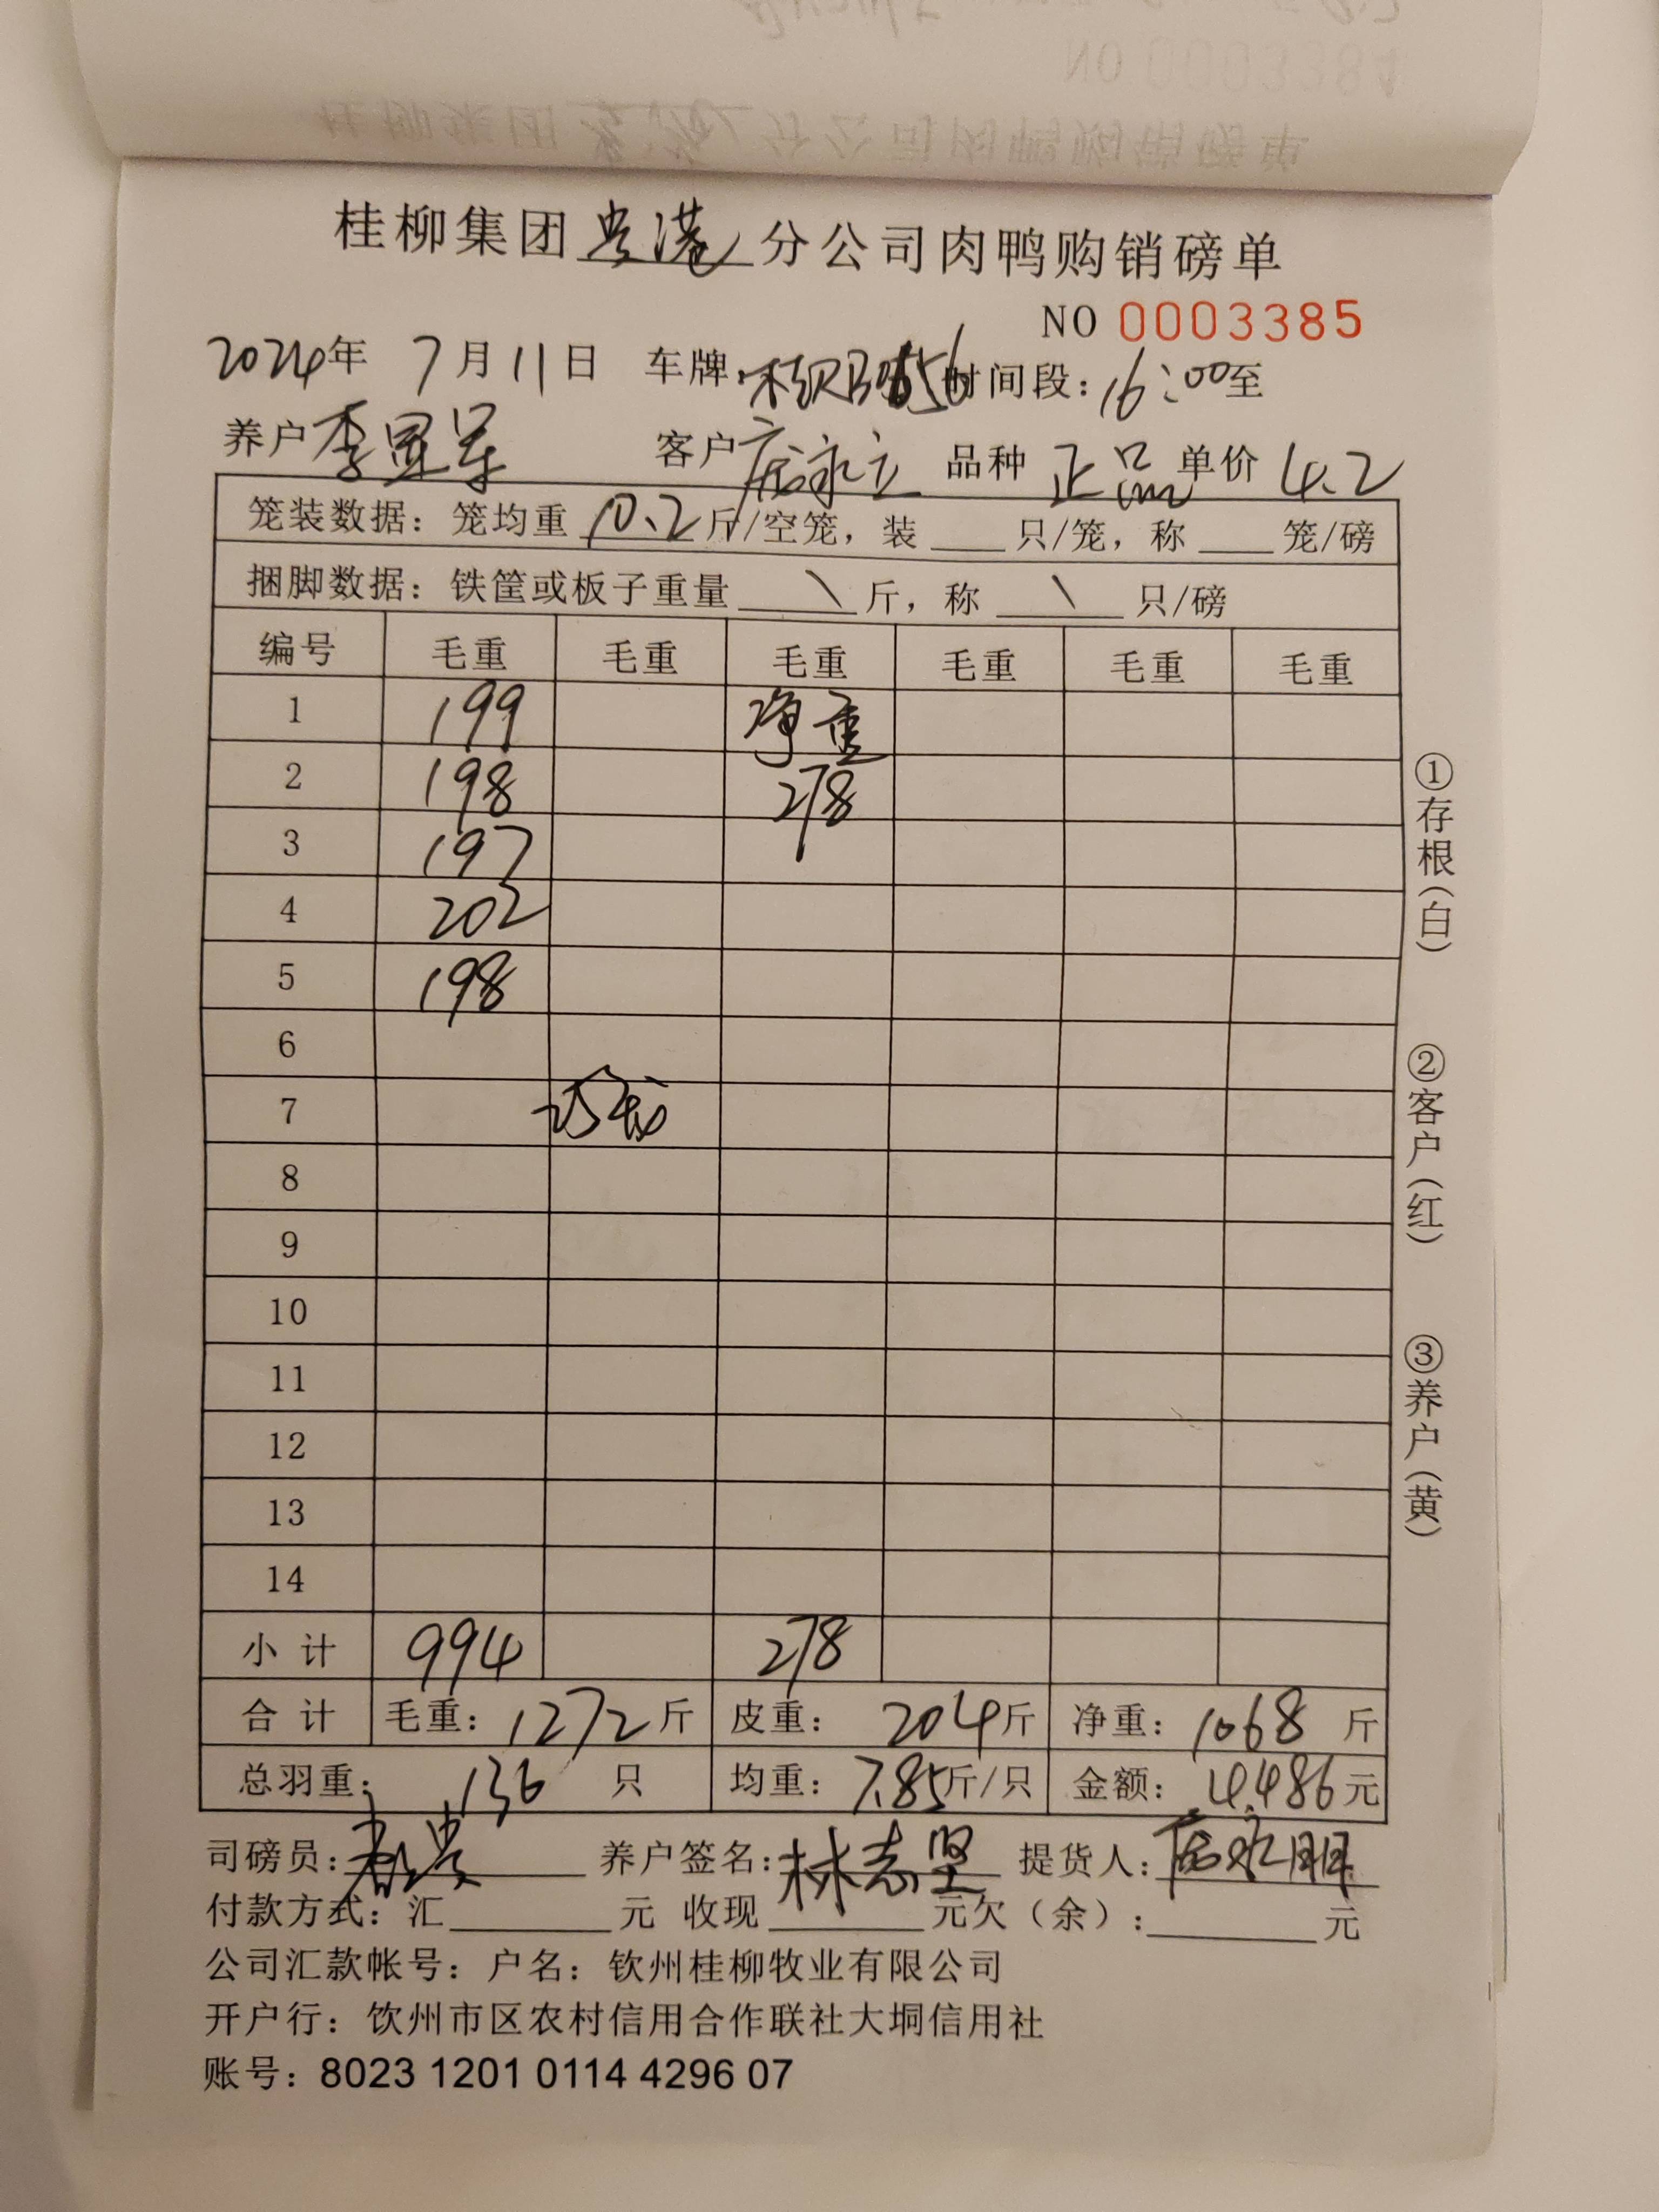 桂柳集团贵港分公司肉鸭购销磅单
NO 0003385
2024年 7月11日 车牌: 时间段: 16:00至
养户 李显军 客户 品种 正品 单价 4.2
笼装数据: 笼均重 10.2 斤/空笼, 装 只/笼, 称 笼/磅
捆脚数据: 铁筐或板子重量 \ 斤, 称 \ 只/磅
编号 毛重 毛重 毛重 毛重 毛重 毛重
1 199 净重
2 198 278
3 197
4 202
5 198
6
7
8
9
10
11
12
13
14
小计 994 278
合计 毛重: 1272 斤 皮重: 204 斤 净重: 1068 斤
总羽重: 136 只 均重: 7.85 斤/只 金额: 4.486 元
司磅员: 养户签名: 林志坚 提货人:
付款方式: 汇 元 收现 元 欠(余): 元
公司汇款帐号: 户名: 钦州桂柳牧业有限公司
开户行: 饮州市区农村信用合作联社大垌信用社
账号: 8023 1201 0114 4296 07
①存根(白)
②客户(红)
③养户(黄)